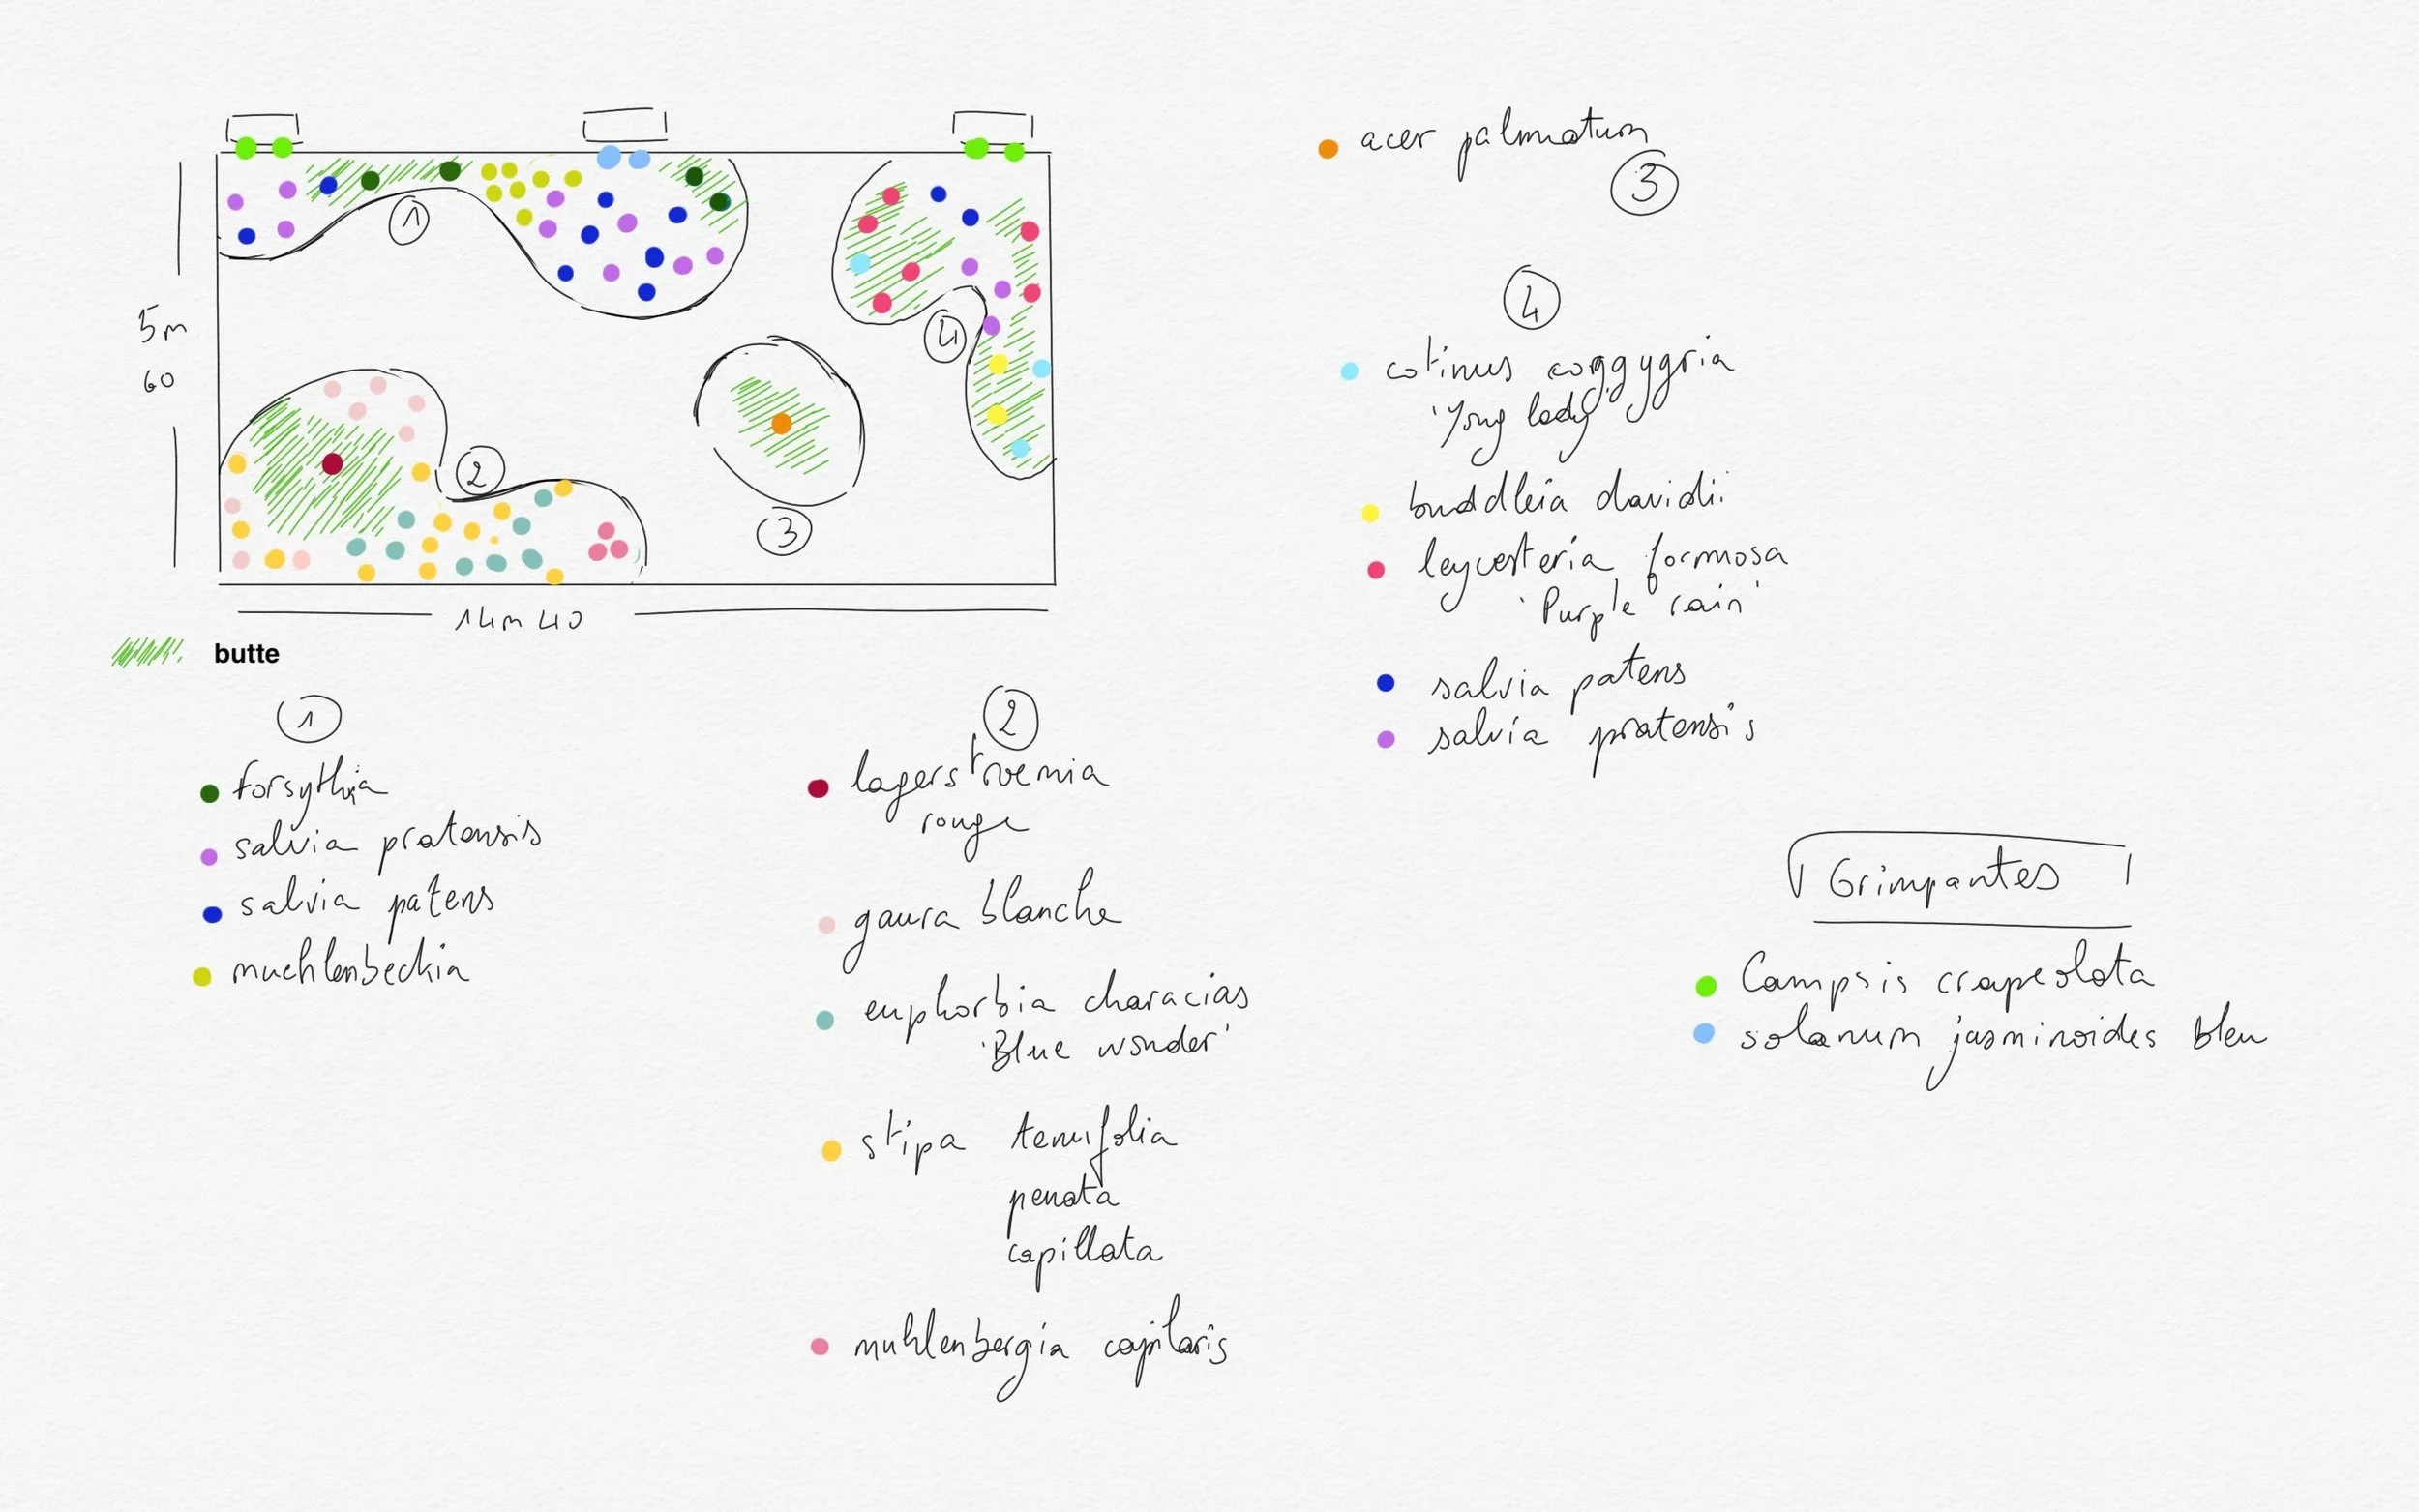 1
5m
60
4
2
3
14m 40
butte
1
forsythia
salvia pratensis
salvia patens
muehlenbeckia
2
lagerstroemia
rouge
gaura blanche
euphorbia characias
'Blue wonder'
stipa tenuifolia
penata
capillata
muhlenbergia capilaris
acer palmatum
3
4
cotinus coggygria
'Yong lady'
buddleia davidii
leycesteria formosa
'Purple rain'
salvia patens
salvia pratensis
Grimpantes
Campsis crapeolata
solanum jasminoides bleu